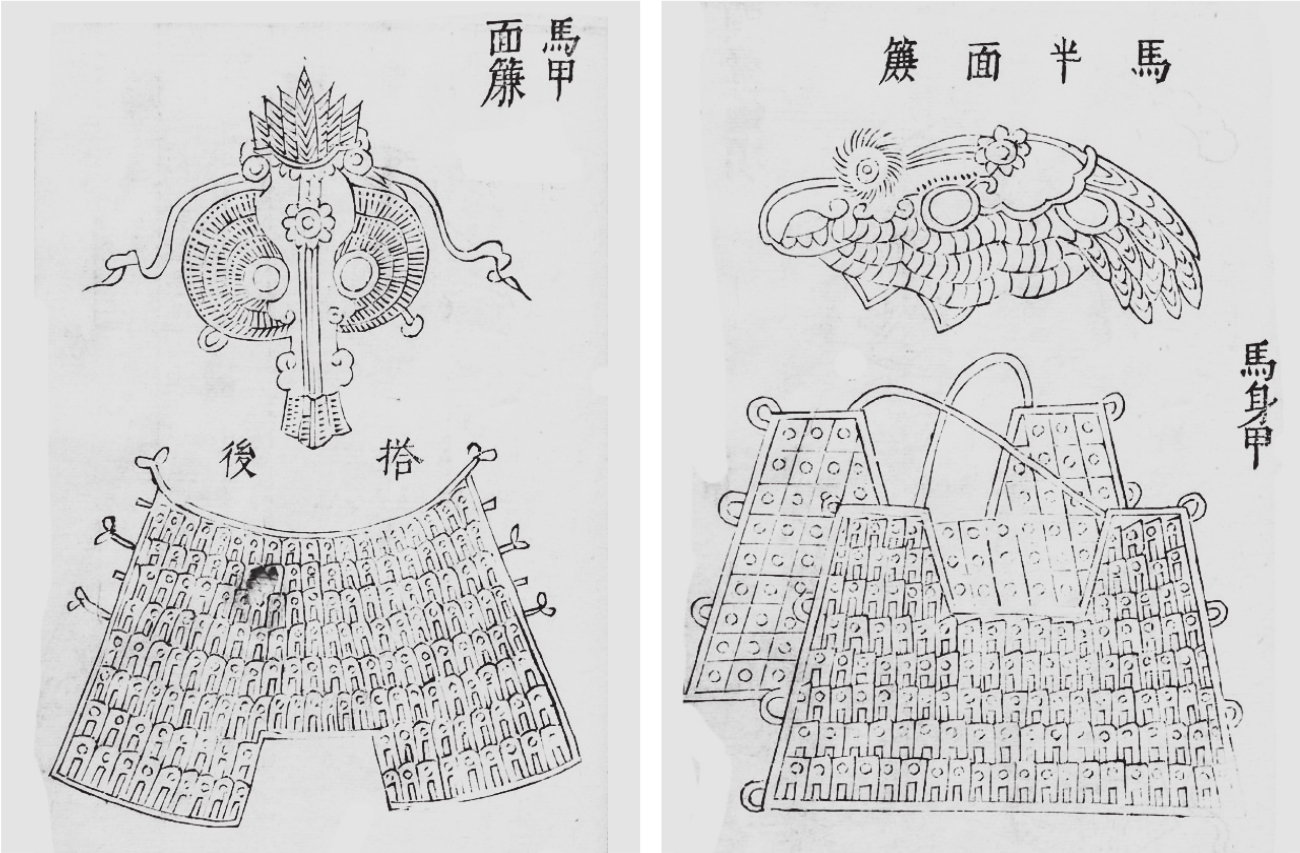 馬甲
面簾
搭後
馬半面簾
馬身甲